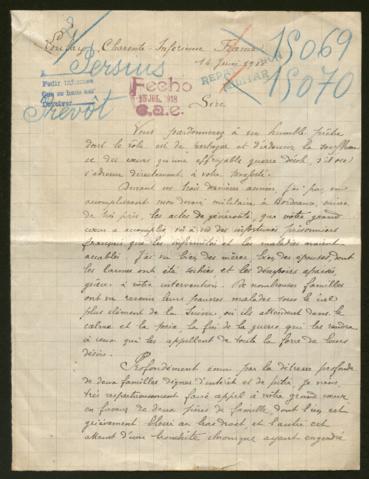 Charente-Inférieure France
14 Juin 1918
15069
15070
REPATRIACION
MILITAR
Persius
Prévôt
A
Pedir informes
Fecho
15 JUL. 1918
c.a.e.
Sire,
Vous pardonnerez à un humble prêtre
dont le rôle est de partager et d'adoucir la souffran-
ce des cœurs qu'une effroyable guerre désole, s'il ose
s'adresser directement à votre Majesté.
Durant ces trois dernières années, j'ai pu, en
accomplissant mon devoir militaire à Bordeaux, suivre
de très près, les actes de générosité, que votre grand
cœur a accomplis, vis à vis des infortunés prisonniers
français que les infirmités et les maladies avaient
accablés. J'ai vu bien des mères, bien des épouses dont
les larmes ont été séchées et les désespoirs apaisés
grâce à votre intervention. De nombreuses familles
ont vu revenir leurs pauvres malades sous le ciel
plus clément de la Suisse, où ils attendent dans le
calme et la paix, la fin de la guerre qui les rendra
à ceux qui les appellent de toute la force de leurs
désirs.
Profondément ému par la détresse profonde
de deux familles dignes d'intérêt et de pitié, je viens,
très respectueusement faire appel à votre grand cœur
en faveur de deux pères de famille, dont l'un est
grièvement blessé au bras droit et l'autre est
atteint d'une bronchite chronique ayant engendré